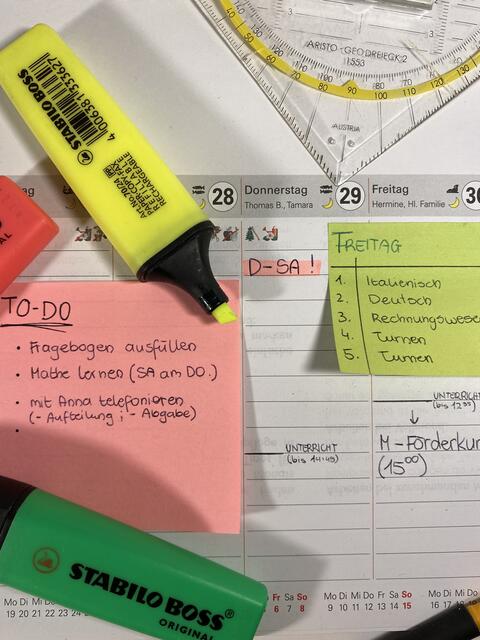 ARISTO-GEODREIECK 2
1553
AUSTRIA
STABILO BOSS
4 006381 333627
Art.No.70/24
PAPER-COPY-FAX
REFILLABLE
RECHARGEABLE
28
Donnerstag
Thomas B., Tamara
29
Freitag
Hermine, Hl. Familie
30
D-SA!
FREITAG
1. Italienisch
2. Deutsch
3. Rechnungswesen
4. Turnen
5. Turnen
TO-DO
• Fragebogen ausfüllen
• Mathe lernen (SA am DO.)
• mit Anna telefonieren
(- Aufteilung ; - Abgabe)
•
UNTERRICHT
(bis 14:45)
UNTERRICHT
(bis 12⁵⁵)
↓
M-Förderkur
(15⁰⁰)
STABILO BOSS®
ORIGINAL
Mo Di Mi Do
19 20 21 22 23 24
Fr Sa So
6 7 8
Mo Di Mi Do Fr Sa So
9 10 11 12 13 14 15
Mo Di Mi
16 17 18